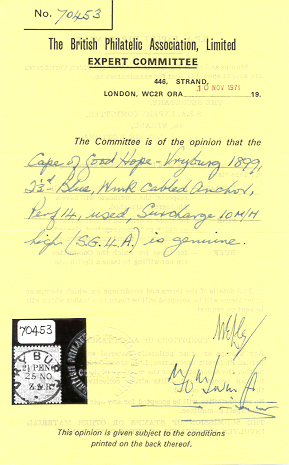 No. 70453
The British Philatelic Association, Limited
EXPERT COMMITTEE
446, STRAND,
LONDON, WC2R ORA 10 NOV 1971 19.
The Committee is of the opinion that the
Cape of Good Hope - Vryburg 1899,
2½d Blue, Wmk Cabled Anchor,
Perf 14, used, Surcharge 10 M/M
high (S.G. 4A) is genuine.
70453
2½ PENCE
This opinion is given subject to the conditions
printed on the back thereof.